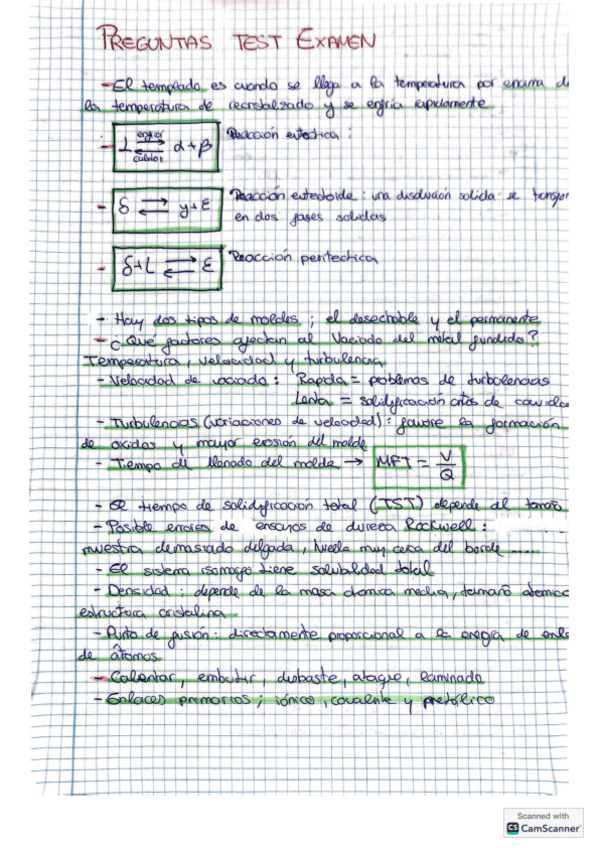 PREGUNTAS TEST EXAMEN
- El templado es cuando se llega a la temperatura por encima d
la temperatura de recristalizado y se enfría rapidamente
- L enfriar ⇌ calentar α+β Reacción eutectica :
- δ ⇌ γ+ε Reacción eutectoide : una disolución solida se transfor
en dos fases solidas
- δ+L ⇌ ε Reacción peritectica
- Hay dos tipos de moldes ; el desechable y el permanente
- ¿Qué factores afectan al Vaciado del metal fundido?
Temperatura, velocidad y turbulencia
- Velocidad de vaciado : Rapida = problemas de turbulencias
Lenta = solidificación antes de cavidad
- Turbulencias (variaciones de velocidad) : favore la formación
de oxidos y mayor erosión del molde
- Tiempo de llenado del molde → MFT = V/Q
- El tiempo de solidificación total (TST) depende del tamaño
- Posible errores de ensayos de dureza Rockwell :
muestra demasiado delgada, huella muy cerca del borde .....
- El sistema isomorfo tiene solubilidad total
- Densidad : depende de la masa atomica media, tamaño atomico
estructura cristalina
- Punto de fusión : directamente proporcional a la energia de enla
de átomos
- Calentar, embutir, disbaste, ataque, laminado
- Enlaces primarios ; iónico, covalente y metálico
Scanned with
CS CamScanner